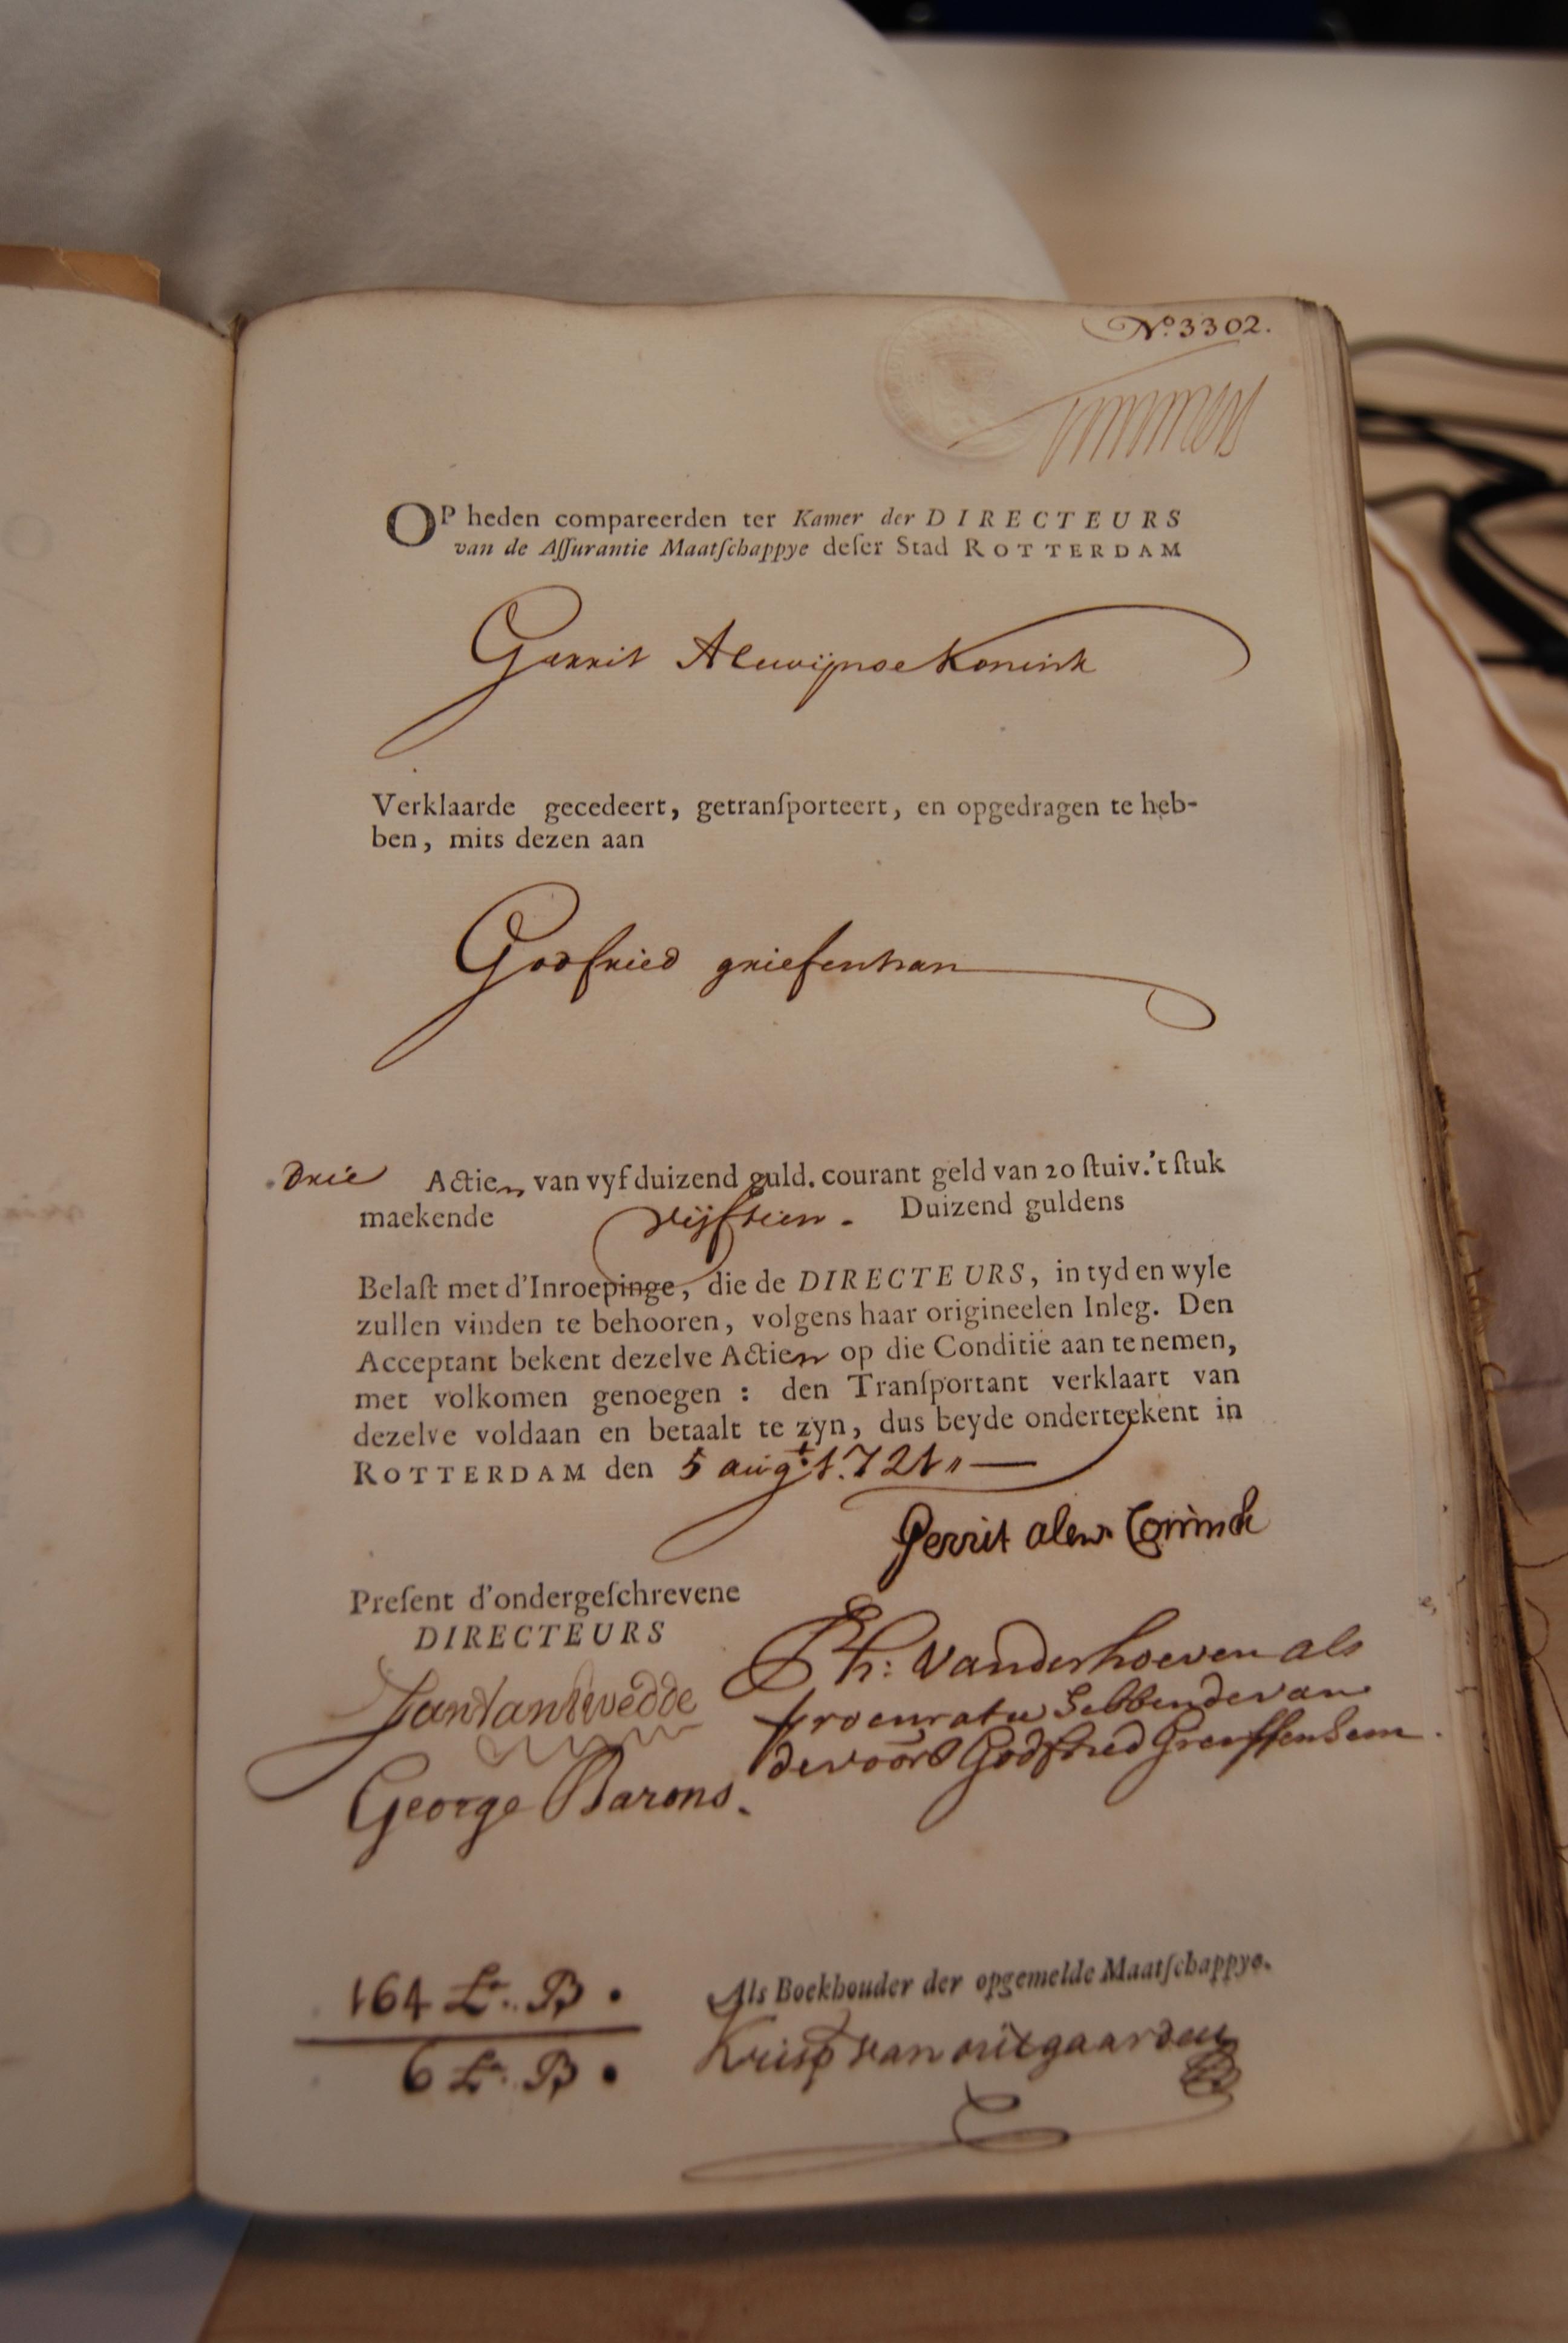 No. 3302.
OP heden compareerden ter Kamer der DIRECTEURS
van de Aſſurantie Maatſchappye deſer Stad ROTTERDAM
Gerrit Alewijnse Konink
Verklaarde gecedeert, getranſporteert, en opgedragen te heb-
ben, mits dezen aan
Godfried griefenhan
Drie Actien van vyf duizend guld. courant geld van 20 ſtuiv. 't ſtuk
maekende vijftien. Duizend guldens
Belaſt met d'Inroepinge, die de DIRECTEURS, in tyd en wyle
zullen vinden te behooren, volgens haar origineelen Inleg. Den
Acceptant bekent dezelve Actien op die Conditie aan te nemen,
met volkomen genoegen : den Tranſportant verklaart van
dezelve voldaan en betaalt te zyn, dus beyde onderteekent in
ROTTERDAM den 5 augt. 1721
Gerrit alew. Coninck
Preſent d'ondergeſchrevene
DIRECTEURS
Ph: Vanderhoeven als
procuratie hebbende van
Godfried
George Barons.
164 Lr. B.
6 Lr. B.
Als Boekhouder der opgemelde Maatſchappye.
van uitgaarden